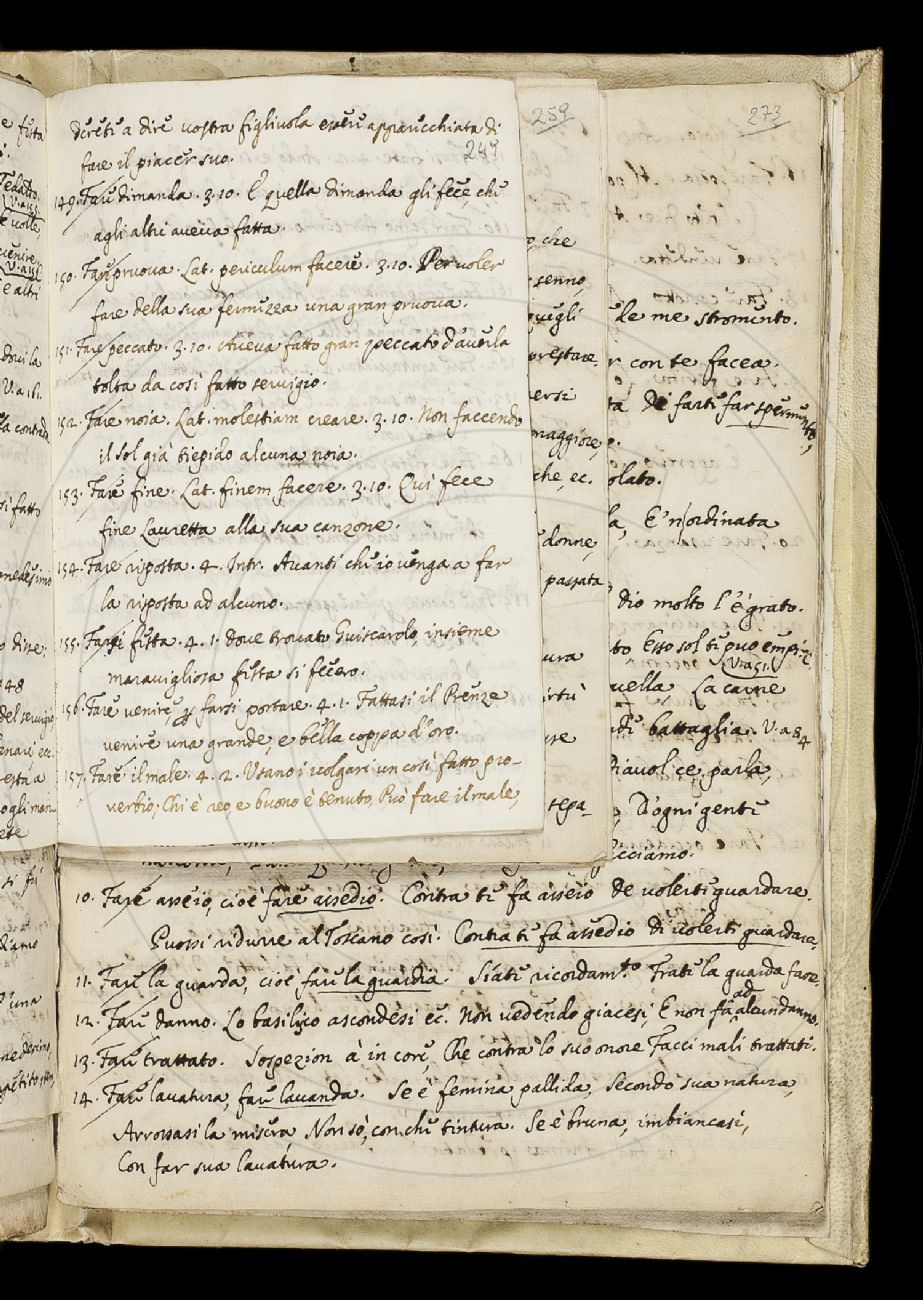 direte a dire vostra figlivola essere apparecchiata di
fare il piacer suo.
249
149. Fare dimanda. 3.10. E quella dimanda gli fece, che
agli altri aveva fatta.
150. Far pruova. Lat. periculum facere. 3.10. Per voler
fare della sua fermezza una gran pruova.
151. Fare peccato. 3.10. Aveva fatto gran peccato d'averla
tolta da così fatto servigio.
152. Fare noia. Lat. molestiam creare. 3.10. Non faccendo
il sol già tiepido alcuna noia.
153. Fare fine. Lat. finem facere. 3.10. Qui fece
fine Lauretta alla sua canzone.
154. Fare risposta. 4. Intr. Avanti che io venga a far
la risposta ad alcuno.
155. Farsi festa. 4.1. Dove trovato Guiscardo, insieme
maravigliosa festa si fecero.
156. Fare venire farsi portare. 4.1. Fattasi il Prenze
venire una grande, e bella coppa d'oro.
157. Fare il male. 4.2. Usano i volgari un così fatto pro-
verbio; Chi è reo, e buono è tenuto, Può fare il male,
259
che
senno
quegli
prestare.
maggiore,
che, ec.
donne,
passata
273
le me stromento.
con te facea.
De farti far spermento,
olato.
E n'ordinata
dio molto l'è grato.
Esso sol ti può empire
V. a 51.
La carne
di battaglia. V. a 84
parla,
D'ogni gente
cciamo.
10. Fare asseio, cioè fare assedio. Contra te fa asseio De volerti guardare.
Puossi ridurre al Toscano così. Contra te fa assedio di volerti guardare.
11. Fare la guarda, cioè fare la guardia. Siati ricordamto Frate la guarda fare.
12. Fare danno. Lo basilisco ascondesi ec. Non vedendo giacesi, E non fa ad alcun danno.
13. Fare trattato. Sospezion à in core, Che contra lo suo onore Facci mali trattati.
14. Fare lavatura, fare lavanda. Se è femina pallida, Secondo sua natura,
Arrossasi la misera, Non sò, con che tintura. Se è bruna, imbiancasi,
Con far sua lavatura.